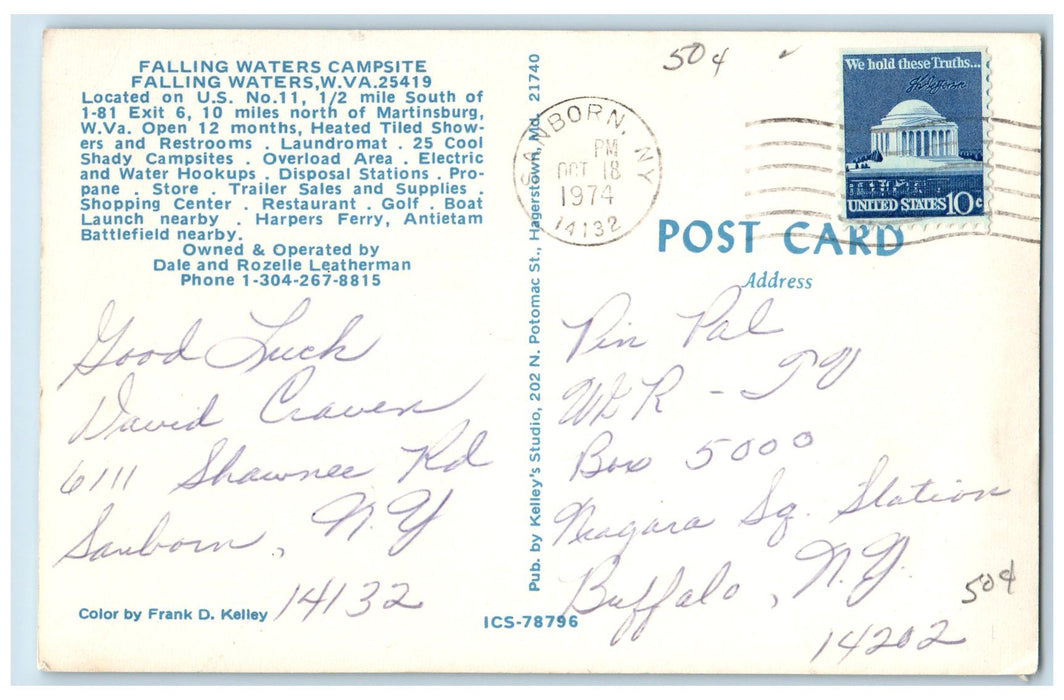 FALLING WATERS CAMPSITE
FALLING WATERS,W.VA.25419
Located on U.S. No.11, 1/2 mile South of
1-81 Exit 6, 10 miles north of Martinsburg,
W.Va. Open 12 months, Heated Tiled Show-
ers and Restrooms . Laundromat . 25 Cool
Shady Campsites . Overload Area . Electric
and Water Hookups . Disposal Stations . Pro-
pane . Store . Trailer Sales and Supplies .
Shopping Center . Restaurant . Golf . Boat
Launch nearby . Harpers Ferry, Antietam
Battlefield nearby.
Owned & Operated by
Dale and Rozelle Leatherman
Phone 1-304-267-8815
Good Luck
David Craven
6111 Shawnee Rd
Sanborn, N.Y
14132
Color by Frank D. Kelley
Pub. by Kelley's Studio, 202 N. Potomac St., Hagerstown, Md. 21740
ICS-78796
50¢
SANBORN, NY
PM
OCT 18
1974
14132
We hold these Truths...
UNITED STATES 10c
POST CARD
Address
Pin Pal
WKR - TV
Box 5000
Niagara Sq. Station
Buffalo, N.Y.
50¢
14202